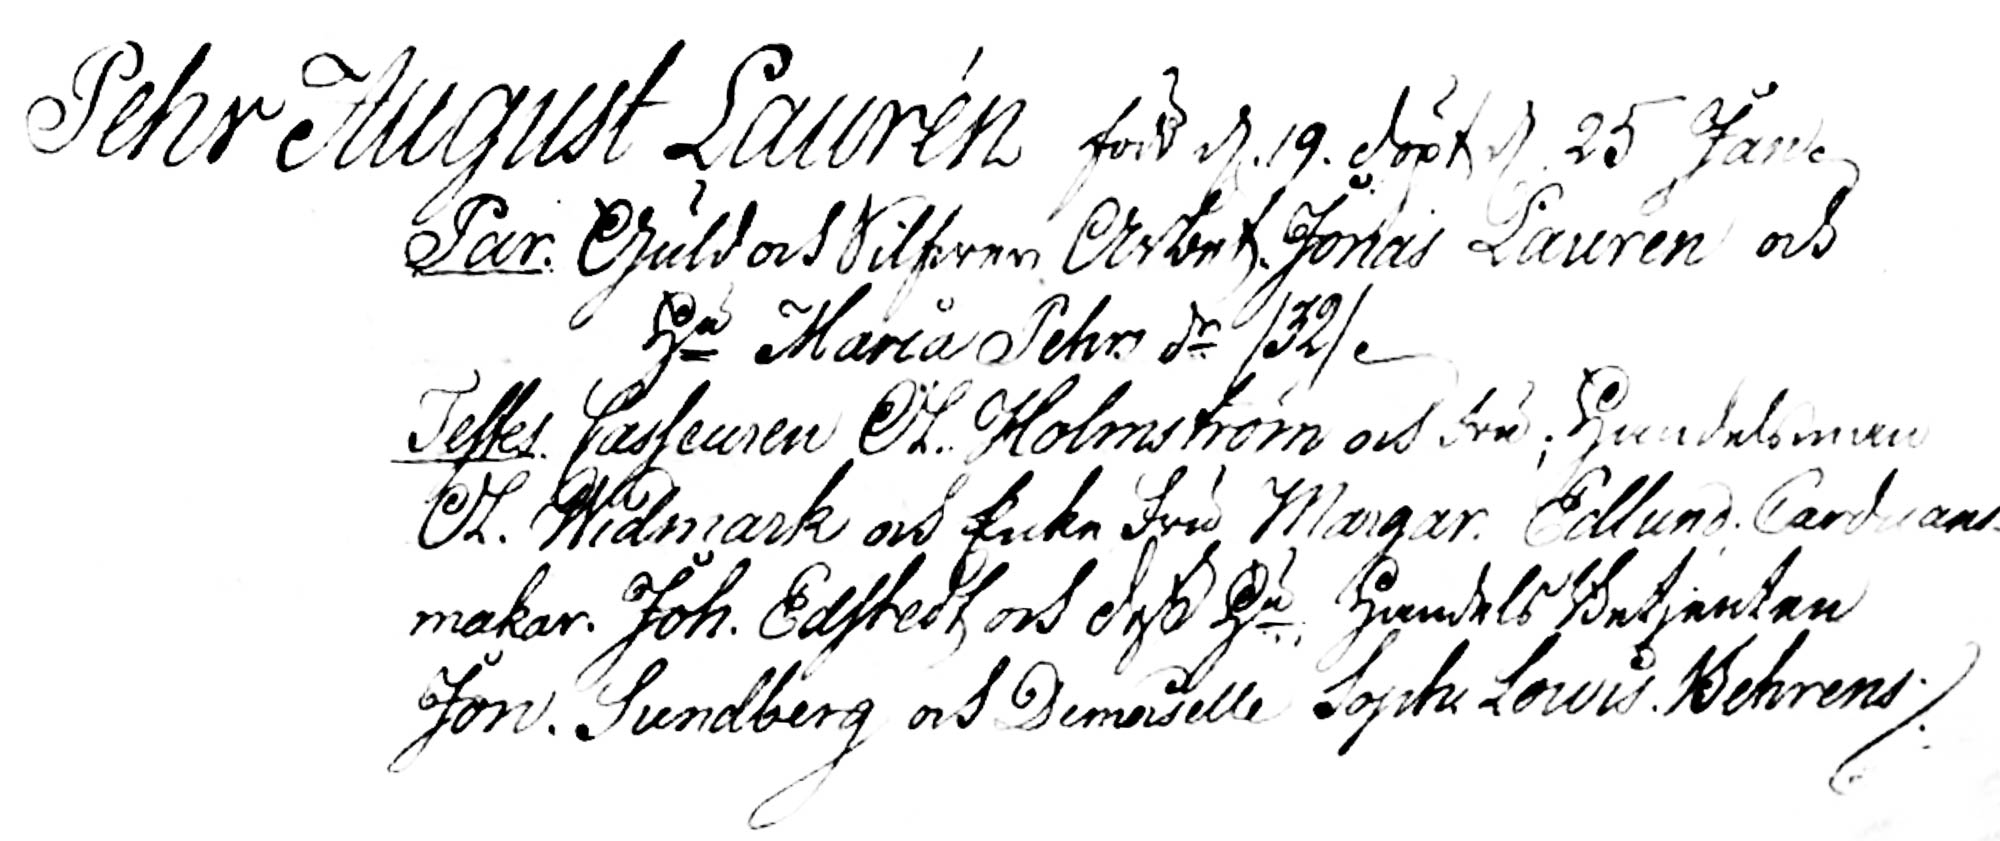 Pehr August Laurén född d. 19. döpt d. 25 Janu.
Par. Guld och Silfver Arbet. Jonas Lauren och
Hu Maria Pehrs dr /32/
Testes. Casseuren Ol. Holmström och Fru; Handelsman
Ol. Widmark och Enke Fru Margar. Edlund. Carduans-
makar. Joh. Edstedt och dess Hu. Handels Betjenten
Jon. Sundberg och Demoiselle Soph. Lowis. Behrens